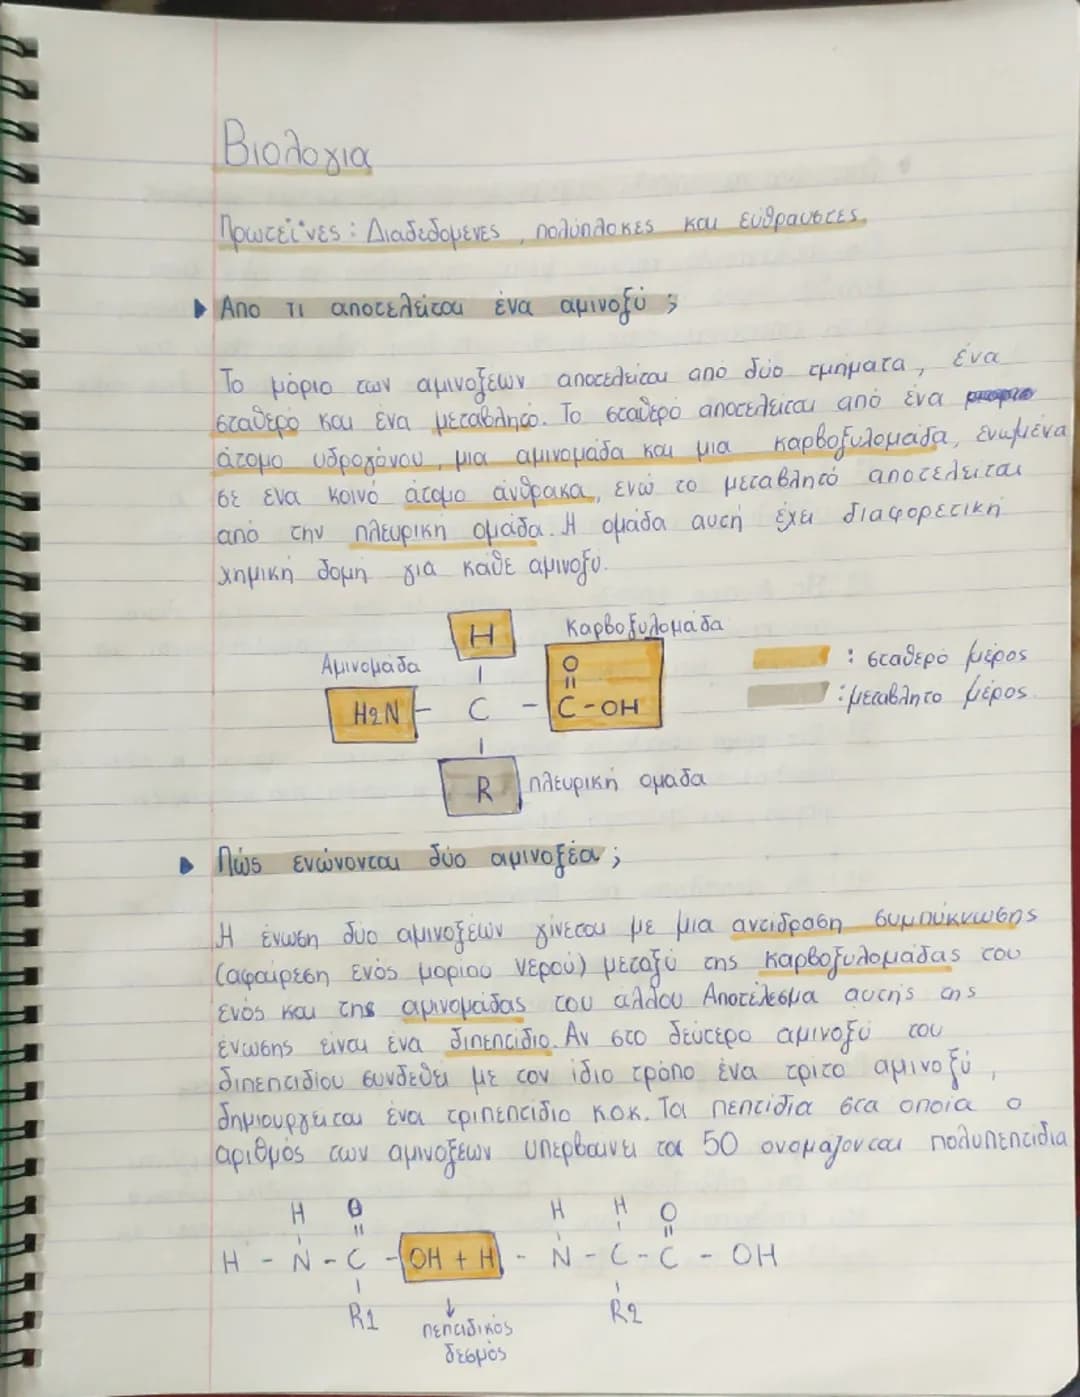 Βιολογια
Πρωτεΐνες: Διαδεδομενες, πολύπλοκες και εύθραυστες.
Απο τι αποτελείται ένα αμινοξύ;
Το μόριο των αμινοξέων αποτελείται από δύο τμήματα, ένα
σταθερό και ένα μεταβλητό. Το σταθερό αποτελείται από ένα
άτομο υδρογόνου, μια αμινομάδα και μια καρβοξυλομάδα, ενωμένα
σε ενα κοινό άτομο άνθρακα, ενώ το μεταβλητό αποτελείται
από την πλευρικη ομάδα. Η ομάδα αυτή έχει διαφορετική
χημική δομή για κάθε αμινοξύ.
H
Καρβοξυλομάδα
Αμινομάδα
O
=
: σταθερό μέρος
H2N - C - C-OH
: μεταβλητο μέρος
R πλευρική ομαδα
Πώς ενώνονται δύο αμινοξέα;
Η ένωση δύο αμινοξέων γίνεται με μια αντιδραση συμπύκνωσης
(αφαίρεση ενός μοριου νερού) μεταξύ της καρβοξυλομάδας του
ενός και της αμινομάδας του αλλου Αποτέλεσμα αυτής της
ένωσης είναι ένα διπεπτιδιο. Αν στο δεύτερο αμινοξύ του
διπεπτιδίου συνδεθεί με τον ίδιο τρόπο ένα τρίτο αμινοξύ,
δημιουργείται ένα τριπεπτίδιο κοκ. Τα πεπτίδια στα οποία ο
αριθμός των αμινοξέων υπερβαινει τα 50 ονομάζονται πολυπεπτιδια
H O H H O
H - N - C - OH + H - N - C - C - OH
R1 R2
↓
πεπτιδικός
δεσμός